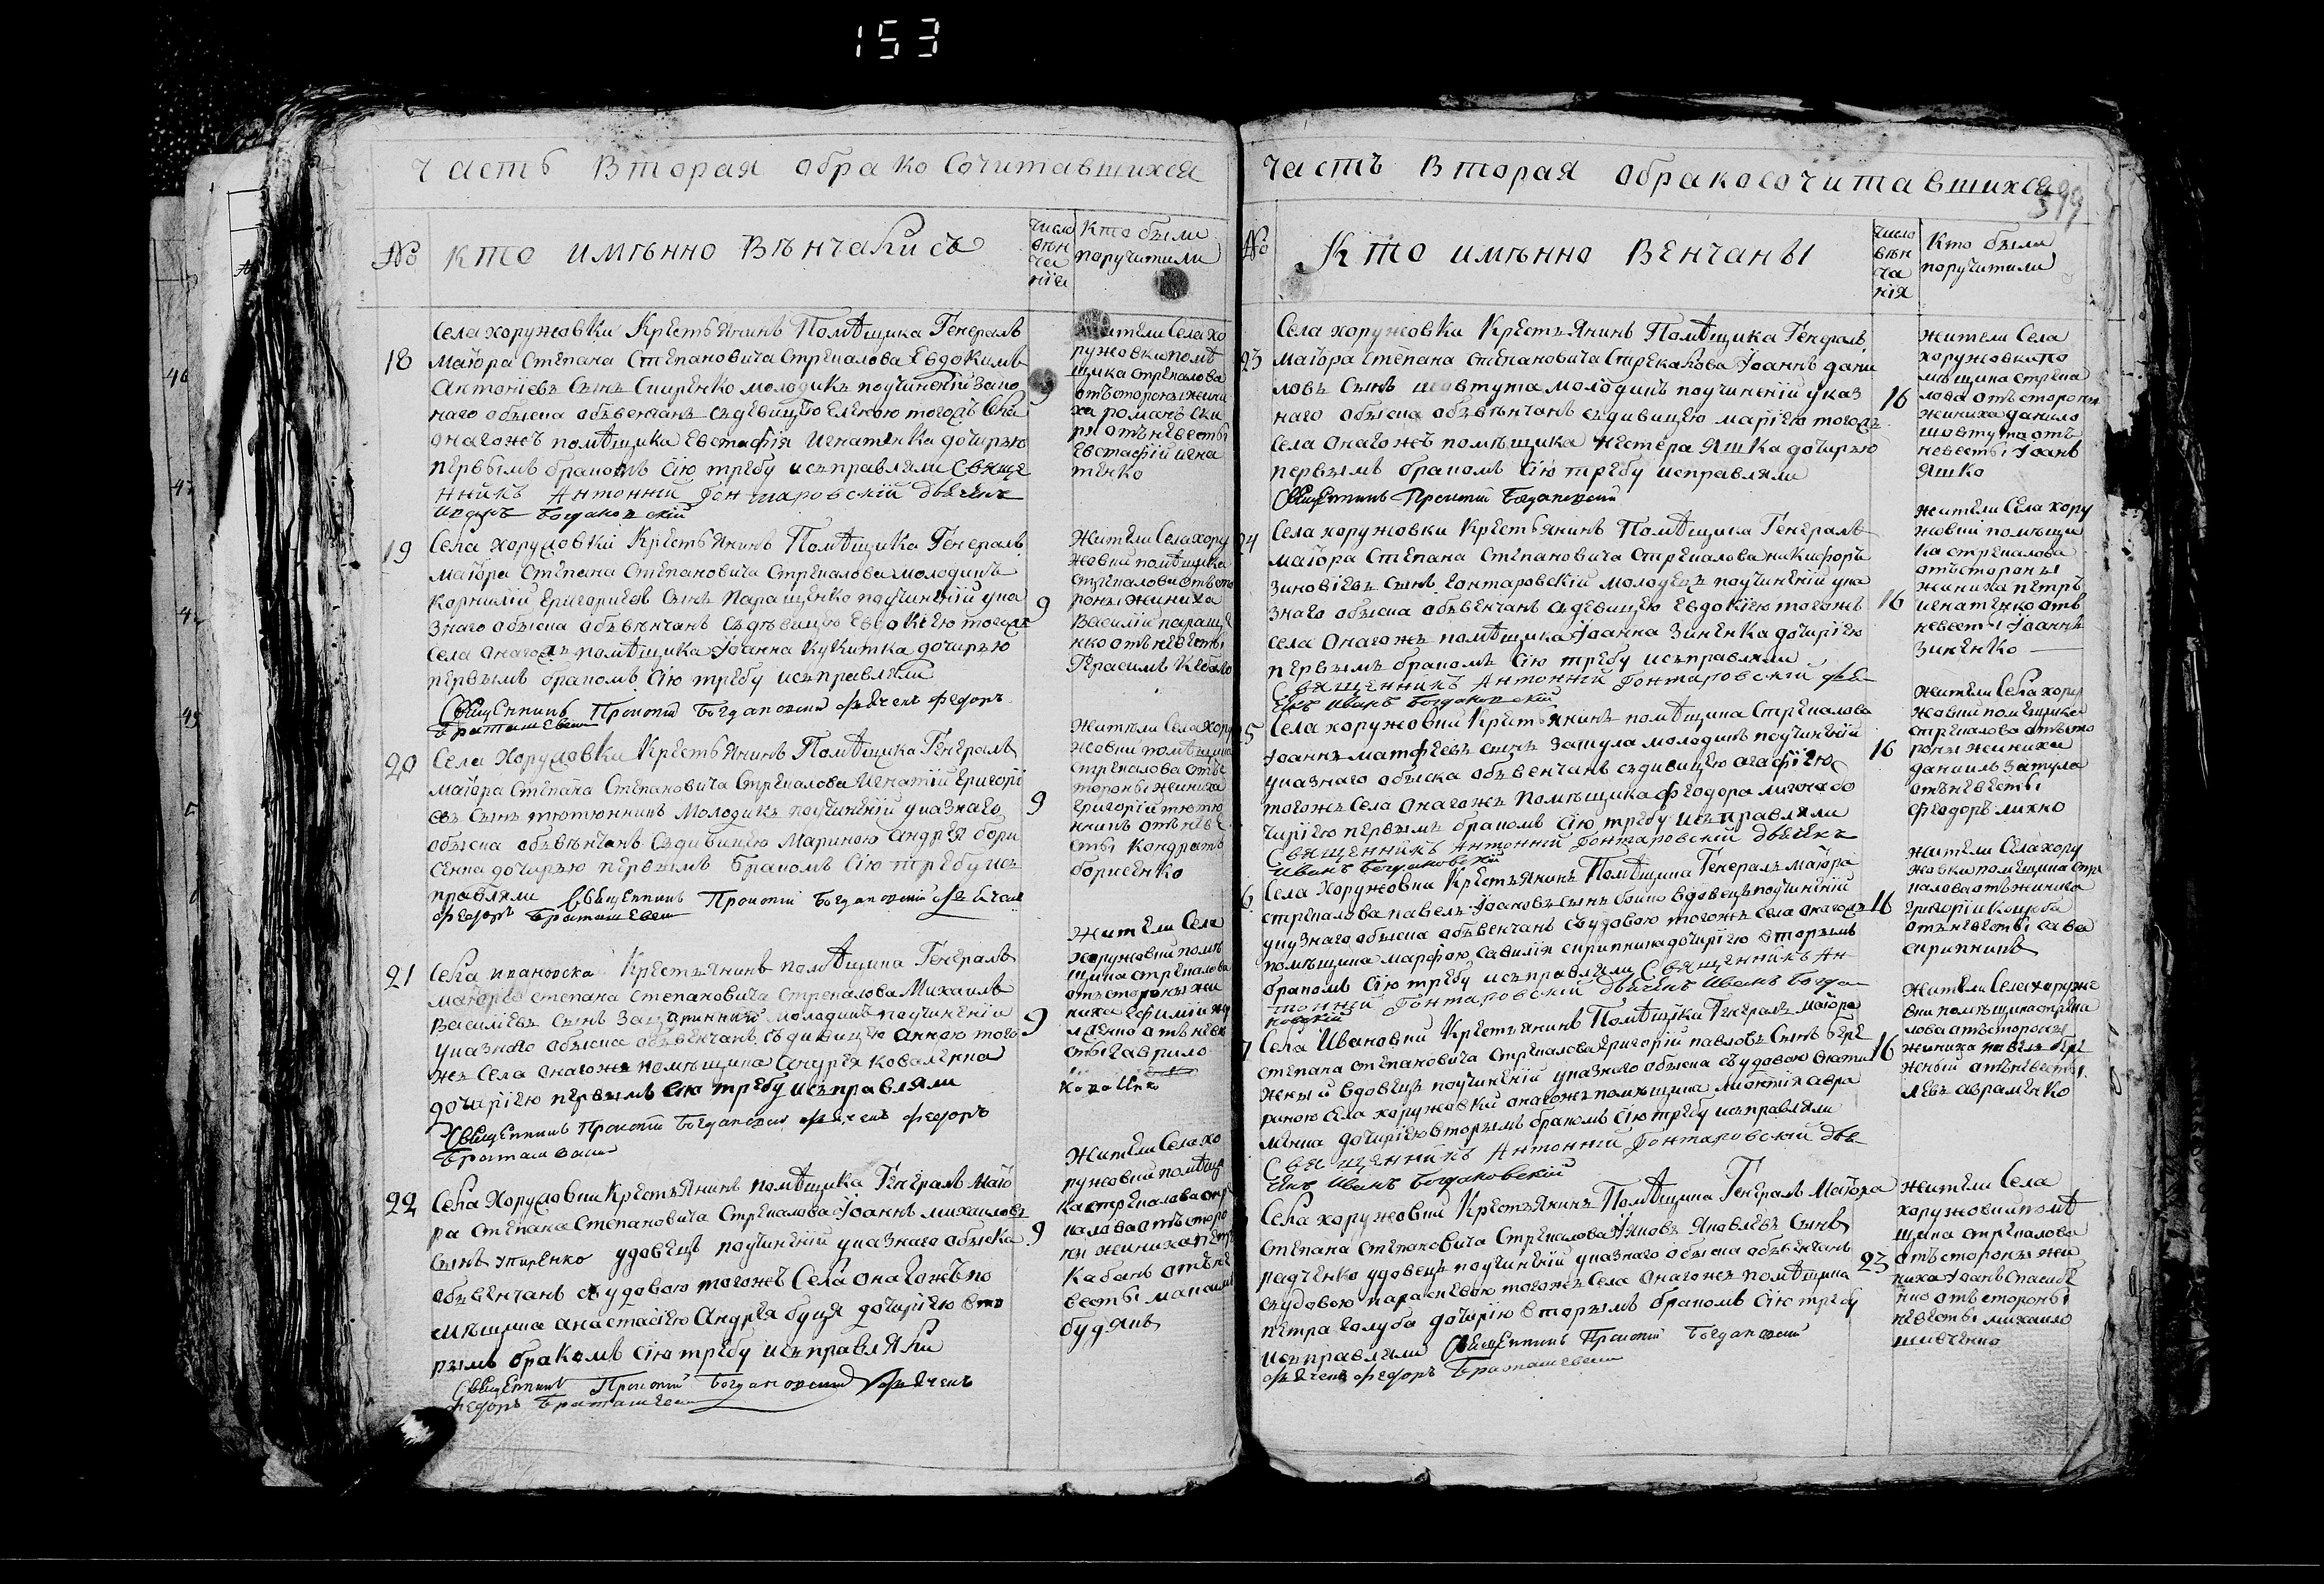 153
Часть Вторая обракосочитавшихся
№
кто имѣнно Вѣнчались
число
вѣн
ча
нія
Кто были
поручители
18
Села хоружовки Крестьянинъ Помѣщика Генералъ
маіора Степана Степановича Стрекалова Евдокимъ
Антоніевъ Сынъ молодикъ поучиненій
наго обыска объвенчанъ съдевицею Еленою тогожъ Села
онагожъ помѣщика Евстафія Игнатенка дочерью
первымъ бракомъ Сію требу исъправляли Свяще
нникъ Антонній Гонтаровскій дьячекъ
Иванъ Богдановскій
9
жители Села хо
ружовки помѣ
щика стрекалова
отъ стороны жени
ха романъ
отъ невесты
Евстафій Игна
тенко
19
Села Хоружовки Крестьянинъ Помѣщика Генералъ
маіора Степана Степановича Стрекалова молодикъ
Корнилій Григоріевъ Сынъ Паращенко поучиненій ука
знаго обыска объвѣнчанъ съдѣвицею Евдокіею тогожъ
села онагожъ помѣщика Іоанна Кукитка дочерью
первымъ бракомъ Сію требу исъправляли
Священникъ Прокопій Богдановскій дьячекъ Федоръ
Браташевскій
9
Жители Села хору
жовки помѣщика
Стрекалова отъ сто
роны жениха
Василій паращѣ
нко отъ невесты
Герасимъ
20
Села Хоружовки Крестьянинъ Помѣщика Генералъ
маіора Степана Степановича Стрекалова Игнатій Григорі
евъ Сынъ тютюнникъ Молодикъ поучиненій указнаго
обыска объвѣнчанъ съдивицею Мариною Андрея бори
сенка дочерью первымъ бракомъ Сію требу исъ
правляли Священникъ Прокопій Богдановскій дьячекъ
Федоръ Браташевскій
9
Жители Села хору
жовки помѣщика
стрекалова отъ с
тороны жениха
Григорій тютю
нникъ отъ неве
сты Кондратъ
борисенко
21
Села ивановска Крестьянинъ помѣщика Генералъ
маіора степана степановича стрекалова Михаилъ
Василіевъ сынъ молодикъ поучиненіи
указнаго обыска объвенчанъ съдивицею Анною того
жъ Села онагожъ помѣщика Андрея Коваленка
дочиріею первымъ Сію требу исъправляли
Священникъ Прокопій Богдановскій дьячекъ Федоръ
9
Жители Села
хоружовки помѣ
щика стрекалова
отъ стороны же
ниха Ефимій
отъ неве
сты Гаврило
Коваленко
22
Села Хоружовки Крестьянинъ помѣщика Генералъ Маіо
ра Степана Степановича Стрекалова Іоаннъ михаиловъ
Сынъ удовецъ поучиненій указнаго обыска
объвенчанъ съудовою тогожъ Села онагожъ по
мѣщика анастасіею Андрея буця дочиріею вто
рымъ бракомъ сію требу исъправляли
Священникъ Прокопій Богдановскій дьячекъ
Федоръ Браташевскій
9
Жители Села хо
ружовки помѣщи
ка стрекалова
отъ сторо
ны жениха петръ
Кабанъ отъ не
весты
Часть Вторая обракосочитавшихся
599
№
Кто имѣнно Венчаны
число
вѣн
ча
нія
Кто были
поручители
23
Села хоружовки Крестьянинъ Помѣщика Генералъ
маіора степана Степановича Стрекалова Іоаннъ дани
ловъ сынъ шовтута молодикъ поучиненій указ
наго обыска объвѣнчанъ съдивицею маріею тогожъ
Села онагожъ помѣщика Нестера Яшка дочирью
первымъ бракомъ Сію требу исправляли
Священникъ Прокопій Богдановскій
16
жители Села
хоружовки по
мѣщика стрека
лова отъ стороны
жениха данило
шовтута отъ
невесты Іоанъ
Яшко
24
Села хоружовки Крестьянинъ Помѣщика Генералъ
маіора Степана Степановича Стрекалова никифоръ
Зиновіевъ Сынъ Гонтаровскій молодецъ поучиненій ука
знаго обыска объвенчанъ съдевицею Евдокіею тогожъ
села онагожъ помѣщика Іоанна Зиненка дочиріею
первымъ бракомъ Сію требу исъправляли
Священникъ Антонній Гонтаровскій дья
чекъ Иванъ Богдановскій
16
жители Села хору
жовки помѣщи
ка стрекалова
отъ стороны
жениха петръ
игнатенко отъ
невесты Іоаннъ
Зиненко
25
Села хоружовки Крестьянинъ помѣщика Стрекалова
Іоаннъ матфеевъ сынъ Затула молодикъ поучиненій
указнаго обыска объвенчанъ съдивицею агафіею
тогожъ Села онагожъ Помѣщика Феодора до
чиріею первымъ бракомъ Сію требу исъправляли
Священникъ Антонній Гонтаровскій дьячекъ
Иванъ Богдановскій
16
жители Села хору
жовки помѣщика
стрекалова отъ сто
роны жениха
даниилъ Затула
отъ невесты
Феодоръ
6
Села Хоружовки Крестьянинъ Помѣщика Генералъ маіора
стрекалова павелъ Іоановъ сынъ вдовецъ поучиненій
указнаго обыска объвенчанъ съудовою тогожъ Села онагожъ
помѣщика марфою Савилія скрипника дочиріею вторымъ
бракомъ Сію требу исъправляли Священникъ Ан
тонній Гонтаровскій дьячекъ Иванъ Богда
новскій
16
жители Села хору
жовки помѣщика стре
калова отъ жениха
Григорій
отъ невесты Сава
скрипникъ
7
Села Ивановки Крестьянинъ Помѣщика Генералъ маіора
степана степановича стрекалова Григорій павловъ Сынъ
вдовецъ поучиненій указнаго обыска съудовою
села хоружовки онагожъ помѣщика авра
менка дочиріею вторымъ бракомъ сію требу исъправляли
Священникъ Антонній Гонтаровскій дья
чекъ Иванъ Богдановскій
16
Жители Села хоружо
вки помѣщика стрека
лова отъ стороны
жениха
отъ невесты
Левъ авраменко
Села хоружовки Крестьянинъ Помѣщика Генералъ Маіора
Степана Степановича Стрекалова Яковъ Яковлевъ Сынъ
радченко удовецъ поучиненій указнаго обыска объвенчанъ
съудовою параскевою тогожъ Села онагожъ помѣщика
петра Голуба дочирію вторымъ бракомъ Сію требу
исъправляли Священникъ Прокопій Богдановскій
дьячекъ Федоръ Браташевскій
23
жители Села
хоружовки помѣ
щика стрекалова
отъ стороны же
ниха Іоанъ
отъ стороны
невесты михаило
шивченко